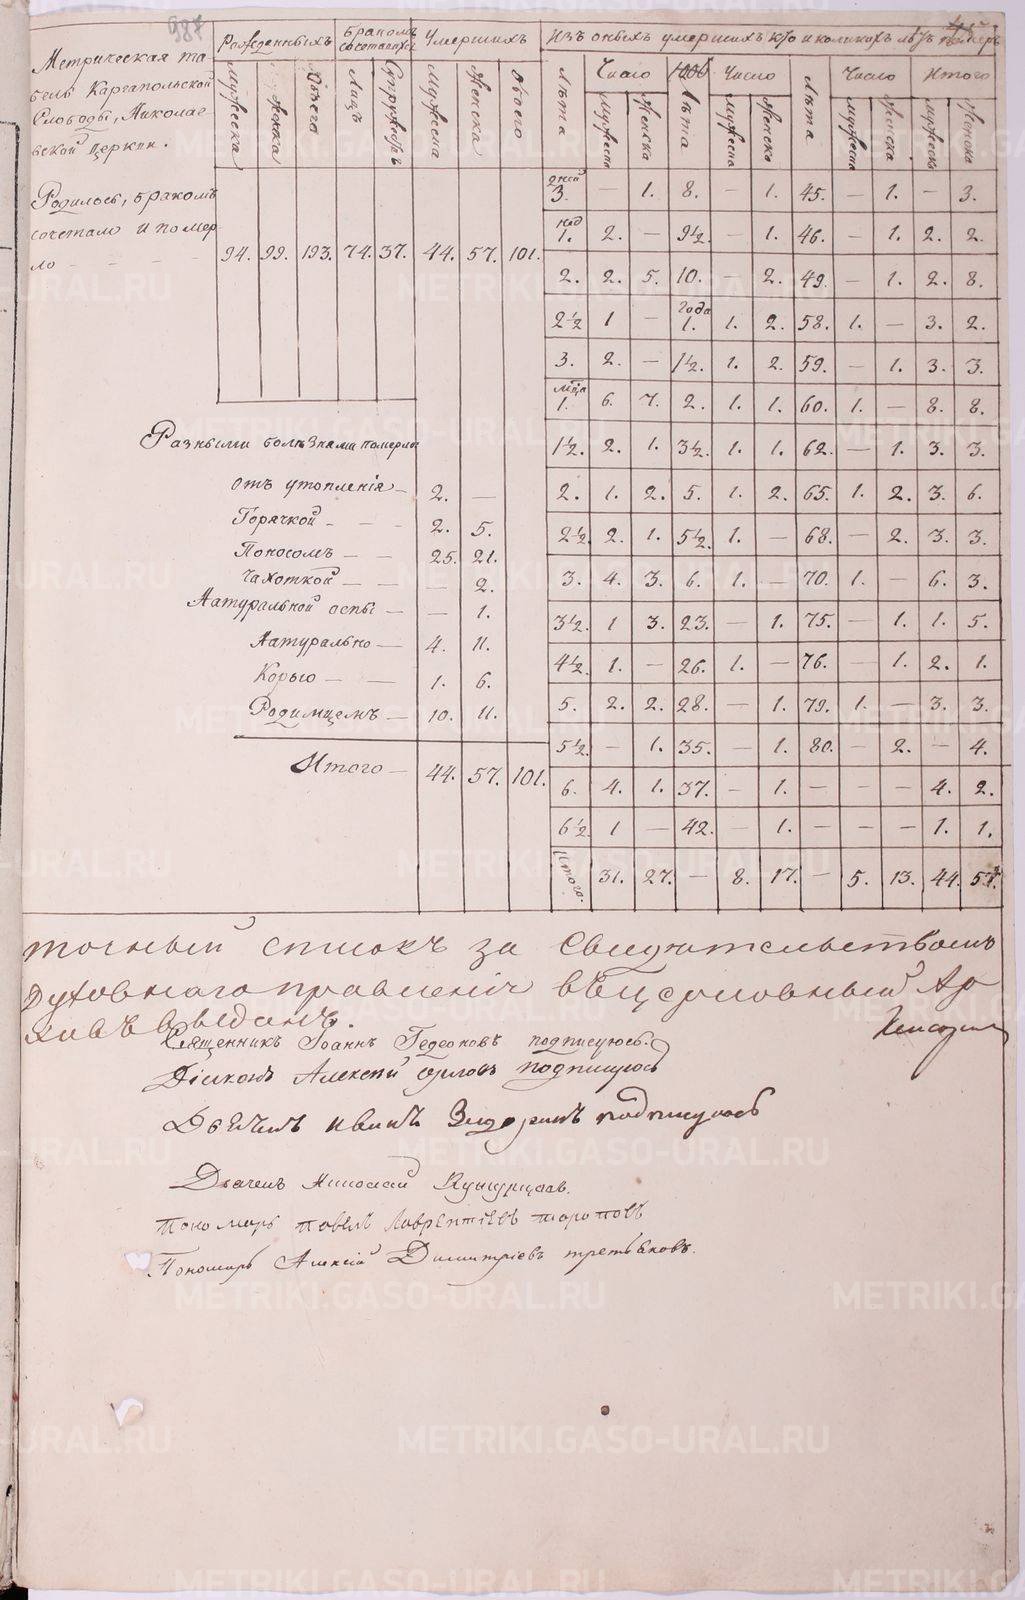 987
Метрическая та
бель Каргапольской
Слободы, Николае
вской церкви.
Рожденныхъ
Бракомъ сочетавшихся
Умершихъ
Изъ оныхъ умершихъ кто и коликихъ лѣтъ
Мужеска Женска Обѣего Лицъ Супружеръ Мужеска Женска Обоего
Лѣта Число Лѣта Число Лѣта Число Итого
Мужеска Женска Мужеска Женска Мужеска Женска Мужеска Женска
Родилось, бракомъ
сочетало и помер
ло - - - - 94. 99. 193. 74. 37. 44. 57. 101.
дней 3. — 1. 8. — 1. 45. — 1. — 3.
нед 1. 2. — 9½. — 1. 46. — 1. 2. 2.
2. 2. 5. 10. — 2. 49. — 1. 2. 8.
2½ 1 — года 1. 1. 2. 58. 1. — 3. 2.
3. 2. — 1½. 1. 2. 59. — 1. 3. 3.
мца 1. 6. 7. 2. 1. 1. 60. 1. — 8. 8.
1½. 2. 1. 3½. 1. 1. 62. — 1. 3. 3.
2. 1. 2. 5. 1. 2. 65. 1. 2. 3. 6.
2½. 2. 1. 5½. 1. — 68. — 2. 3. 3.
3. 4. 3. 6. 1. — 70. 1. — 6. 3.
3½. 1 3. 23. — 1. 75. — 1. 1. 5.
4½. 1. — 26. 1. — 76. — 1. 2. 1.
5. 2. 2. 28. — 1. 79. 1. — 3. 3.
5½. — 1. 35. — 1. 80. — 2. — 4.
6. 4. 1. 37. — 1. — — — 4. 2.
6½. 1 — 42. — 1. — — — 1. 1.
Итого. 31. 27. — 8. 17. — 5. 13. 44. 57.
Разными болѣзнами померли
отъ утопленія — 2. —
Горячкой - - - 2. 5.
Поносомъ — — 25. 21.
Чахоткой — — — 2.
Натуральной оспы — — 1.
Натурально — 4. 11.
Корью — — 1. 6.
Родимцемъ — 10. 11.
Итого — 44. 57. 101.
точный списокъ за Свидѣтельствомъ
Духовнаго правленія
Священникъ Іоаннъ Гедеоновъ подписуюсь.
Діяконъ Алексѣй Орловъ подписуюсь
Дьячекъ Иванъ подписуюсь
Дьячекъ Николай
Пономарь Павелъ Лаврентіевъ Топоровъ
Пономарь Алексѣй Димитріевъ Третьяковъ.
METRIKI.GASO-URAL.RU